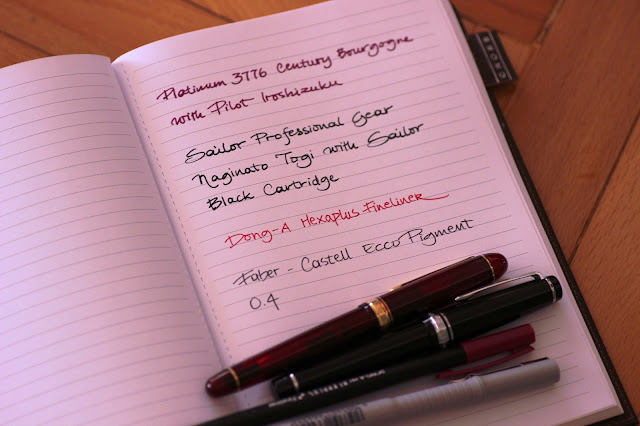 Platinum 3776 Century Bourgogne
with Pilot Iroshizuku
Sailor Professional Gear
Naginato Togi with Sailor
Black Cartridge
Dong-A Hexaplus Fineliner
Faber-Castell Ecco Pigment
0.4
CROSS